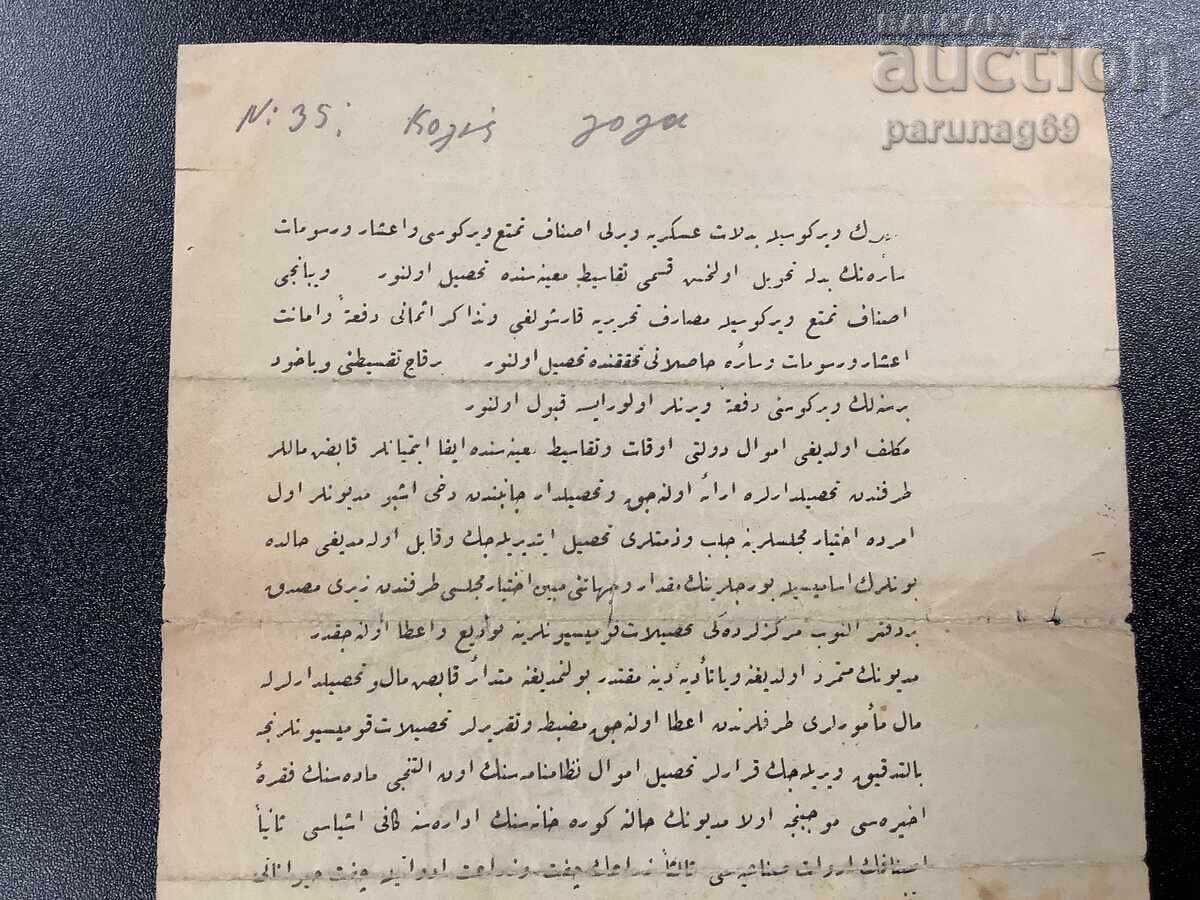 BALKAN
auction
parunag69
N: 35;
ويركوسيله بدلات عسكريه ويرلى اصناف تمتع ويركوسى واعشار ورسومات
سائره‌نك بدله تحويل اولنمش قسمى تقاسيط معينه‌سنده تحصيل اولنور ويبانجى
اصناف تمتع ويركوسيله مصارف تحريريه قارشولغى وتذاكر اثمانى دفعةً وامانت
اعشار ورسومات وسائره حاصلاتى تحققنده تحصيل اولنور برقاچ تقسيطنى وياخود
برسنه‌لك ويركوسنى دفعةً ويرنلر اولورايسه قبول اولنور
مكلف اولديغى اموال دولتى اوقات وتقاسيط معينه‌سنده ايفا ايتميانلر قابض ماللر
طرفندن تحصيلدارلره ارائه اولنه‌جق وتحصيلدار جانبندن دخى اشبو مديونلر اول
امرده اختيار مجلسلرينه جلب وذمتلرى تحصيل ايتديريله‌جك وقابل اوله‌مديغى حالده
بونلرك اساميسيله بورجلرينك مقدار وجهاتنى مبين اختيار مجلسى طرفندن زيرى مصدق
بردفتر النوب مركزلرده‌كى تحصيلات قوميسيونلرينه توديع واعطا اولنه‌جقدر
مديونك متمرد اولديغنه وياتأديهٔ دينه مقتدر بولنمديغنه متدائر قابض مال وتحصيلدارلرله
مال مأمورلرى طرفلرندن اعطا اولنه‌جق مضبطه وتقريرلر تحصيلات قوميسيونلرنجه
بالتدقيق ويريله‌جك قرارلر تحصيل اموال نظامنامه‌سنك اون التنجى ماده‌سنك فقرهٔ
اخيره‌سى موجبنجه اولا مديونك حالنه كوره خانه‌سنك اداره‌سنه كافى اشياسى ثانياً
اصنافك ادوات صناعيه‌سى ثالثاً زراعتك چفت وزراعت ادواتيله چفت حيواناتى